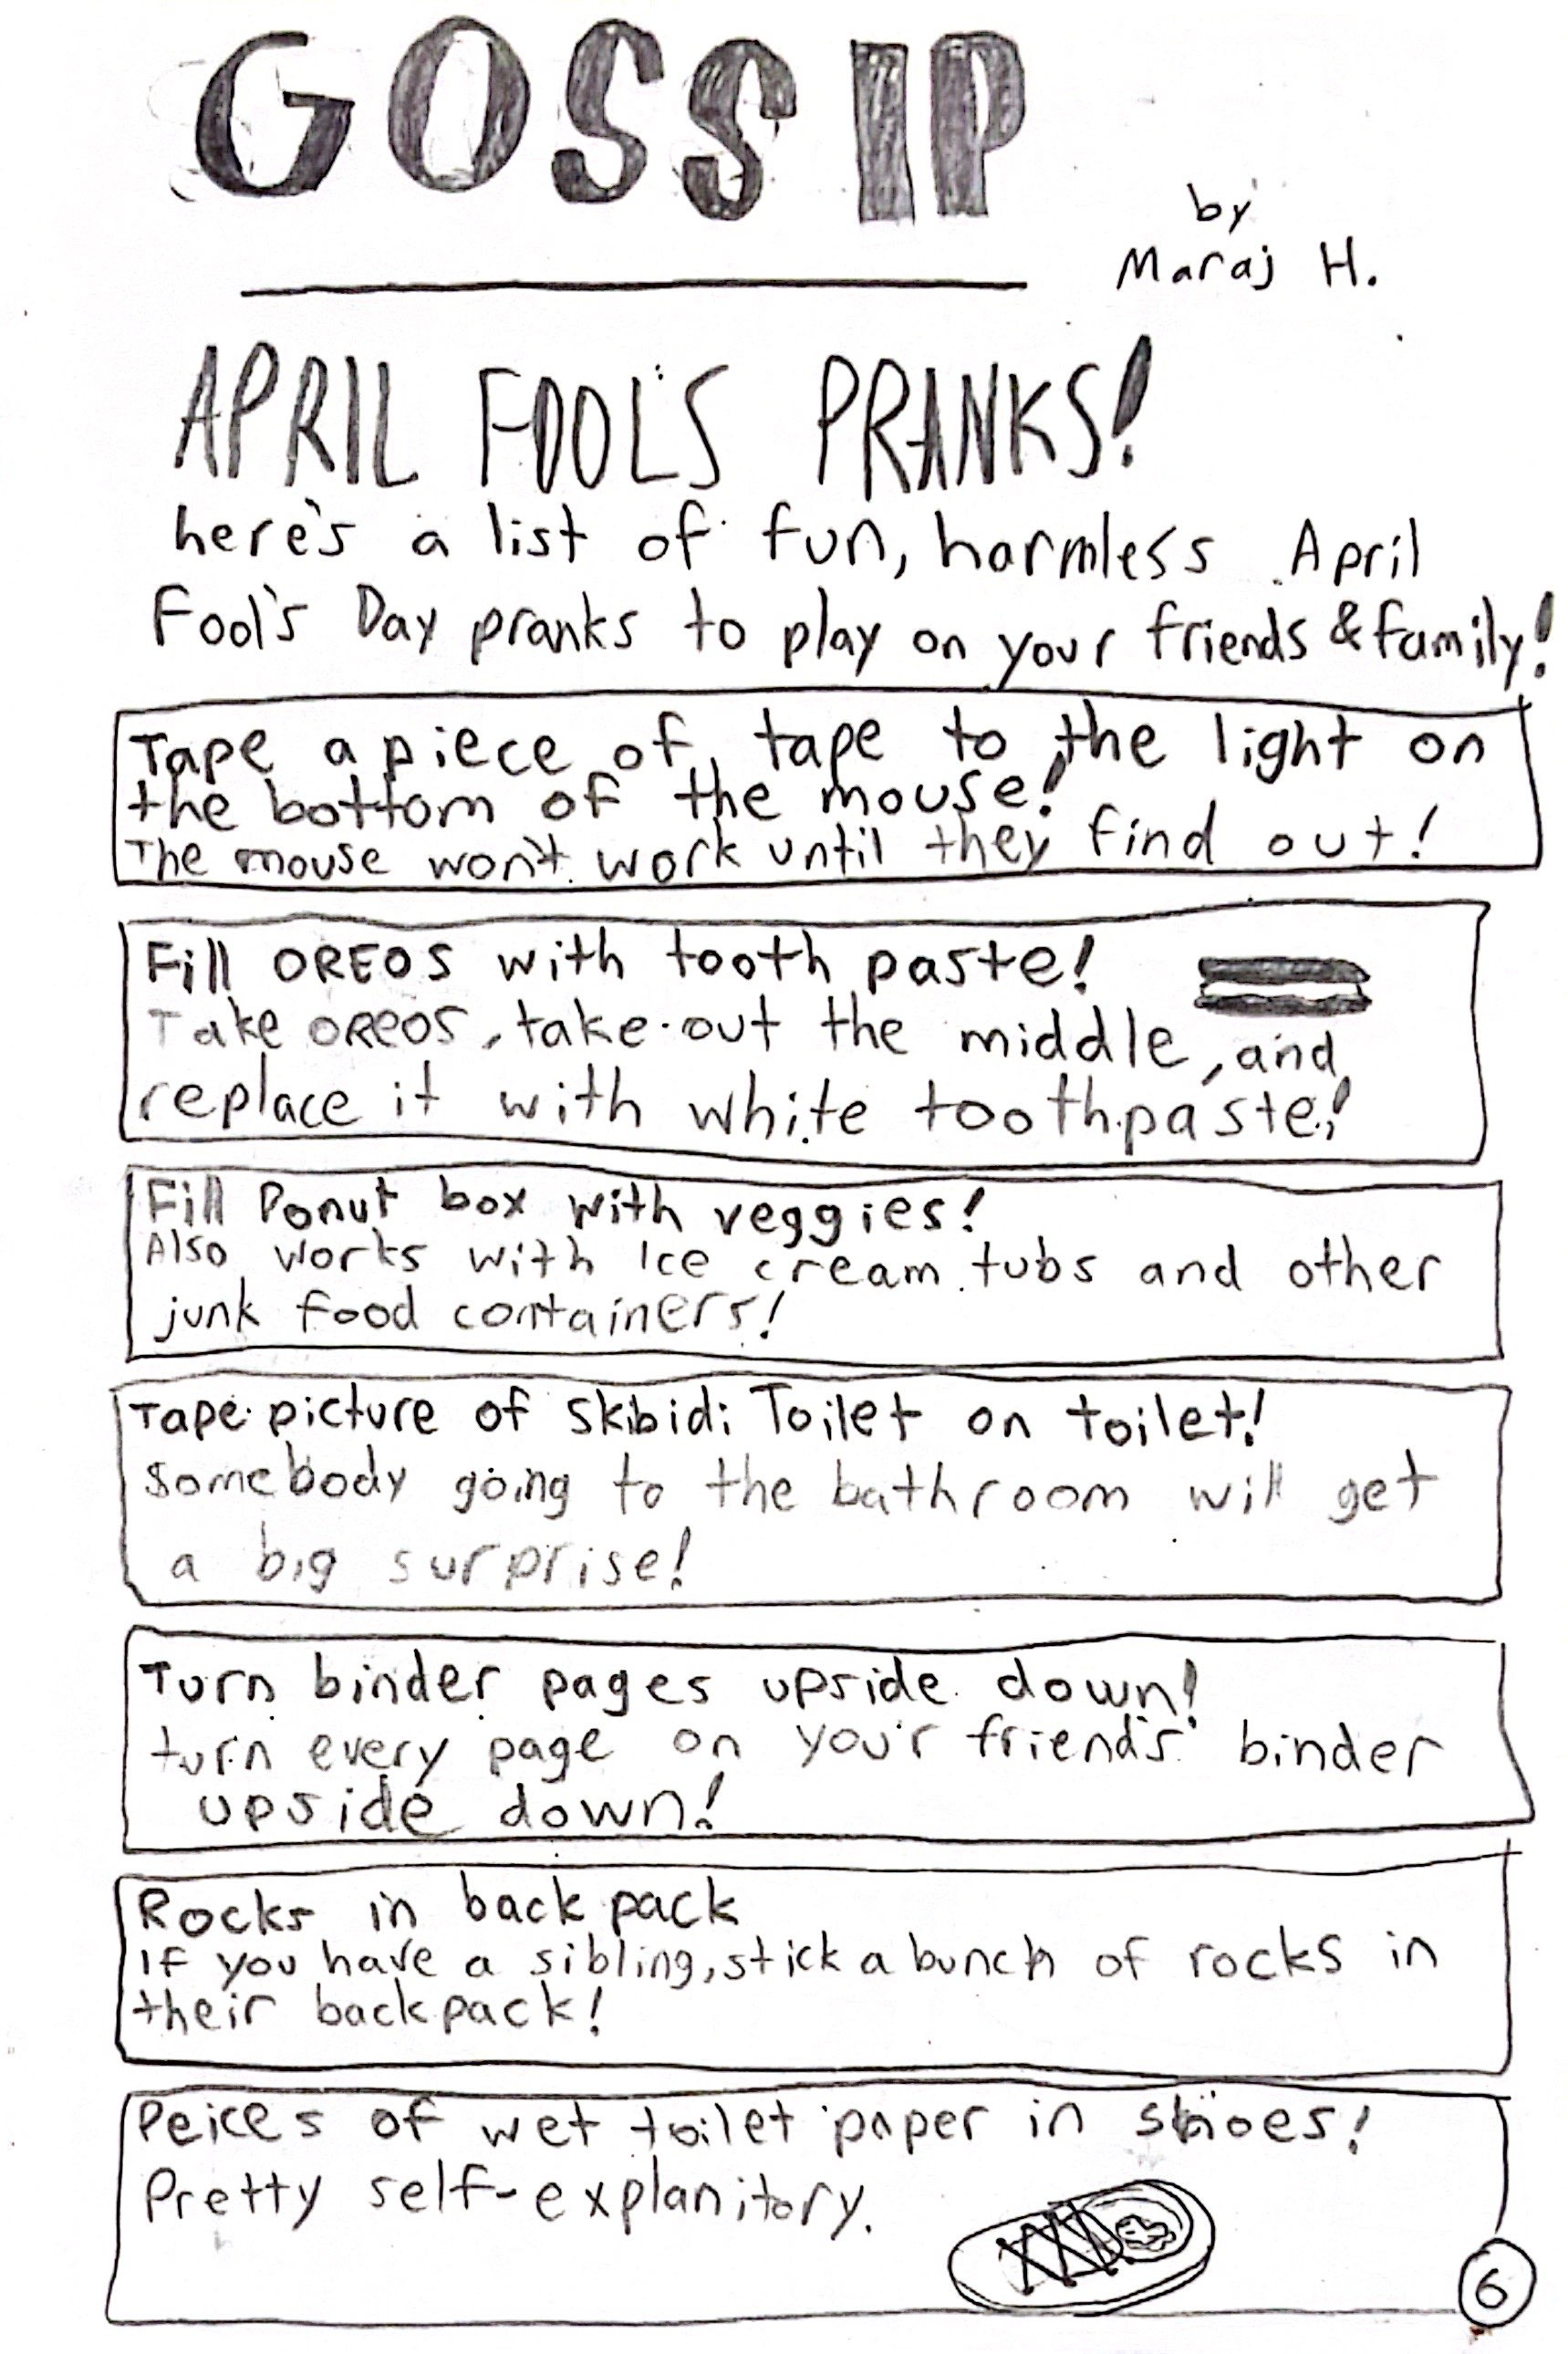 GOSSIP
by
Maraj H.
APRIL FOOL'S PRANKS!
here's a list of fun, harmless April
Fool's Day pranks to play on your friends & family!
Tape a piece of tape to the light on
the bottom of the mouse!
The mouse won't work until they find out!
Fill OREOS with tooth paste!
Take OREOS, take out the middle, and
replace it with white toothpaste!
Fill Donut box with veggies!
Also works with Ice cream tubs and other
junk food containers!
Tape picture of Skibidi Toilet on toilet!
Somebody going to the bathroom will get
a big surprise!
Turn binder pages upside down!
turn every page on your friend's binder
upside down!
Rocks in back pack
If you have a sibling, stick a bunch of rocks in
their backpack!
Peices of wet toilet paper in shoes!
Pretty self-explanitory.
6